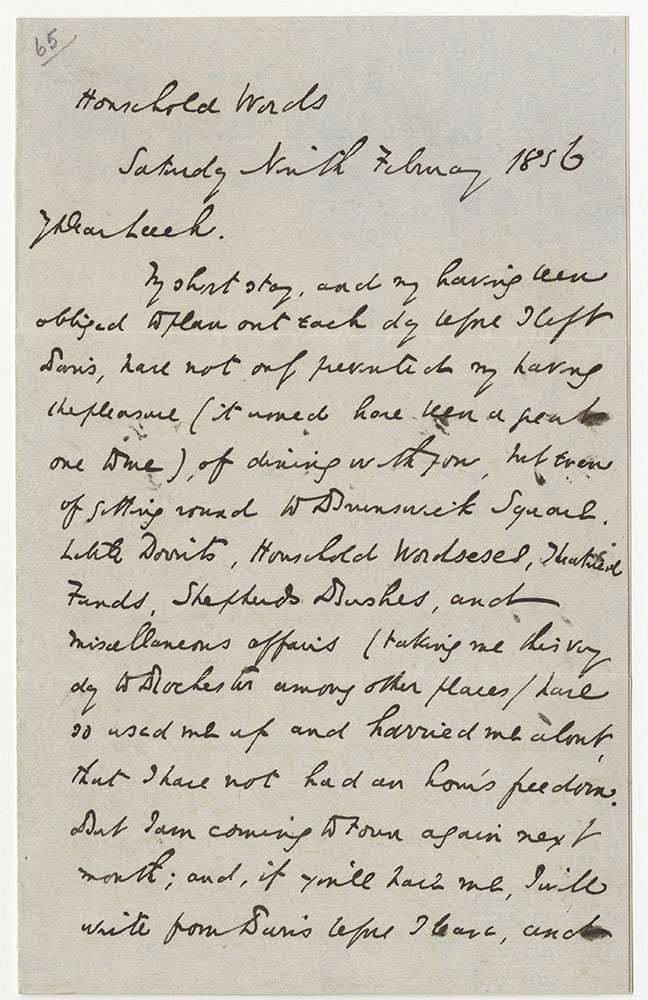 65
Household Words
Saturday Ninth February 1856
My Dear Leech.
My short stay, and my having been
obliged to plan out each day before I left
Paris, have not only prevented my having
the pleasure (it would have been a great
one to me), of dining with you, but even
of getting round to Brunswick Square.
Little Dorrits, Household Wordses, Theatrical
Funds, Shepherd's Bushes, and
miscellaneous affairs (taking me this very
day to Rochester among other places) have
so used me up and harried me about,
that I have not had an hour's freedom.
But I am coming to town again next
month; and, if you'll have me, I will
write from Paris before I leave, and